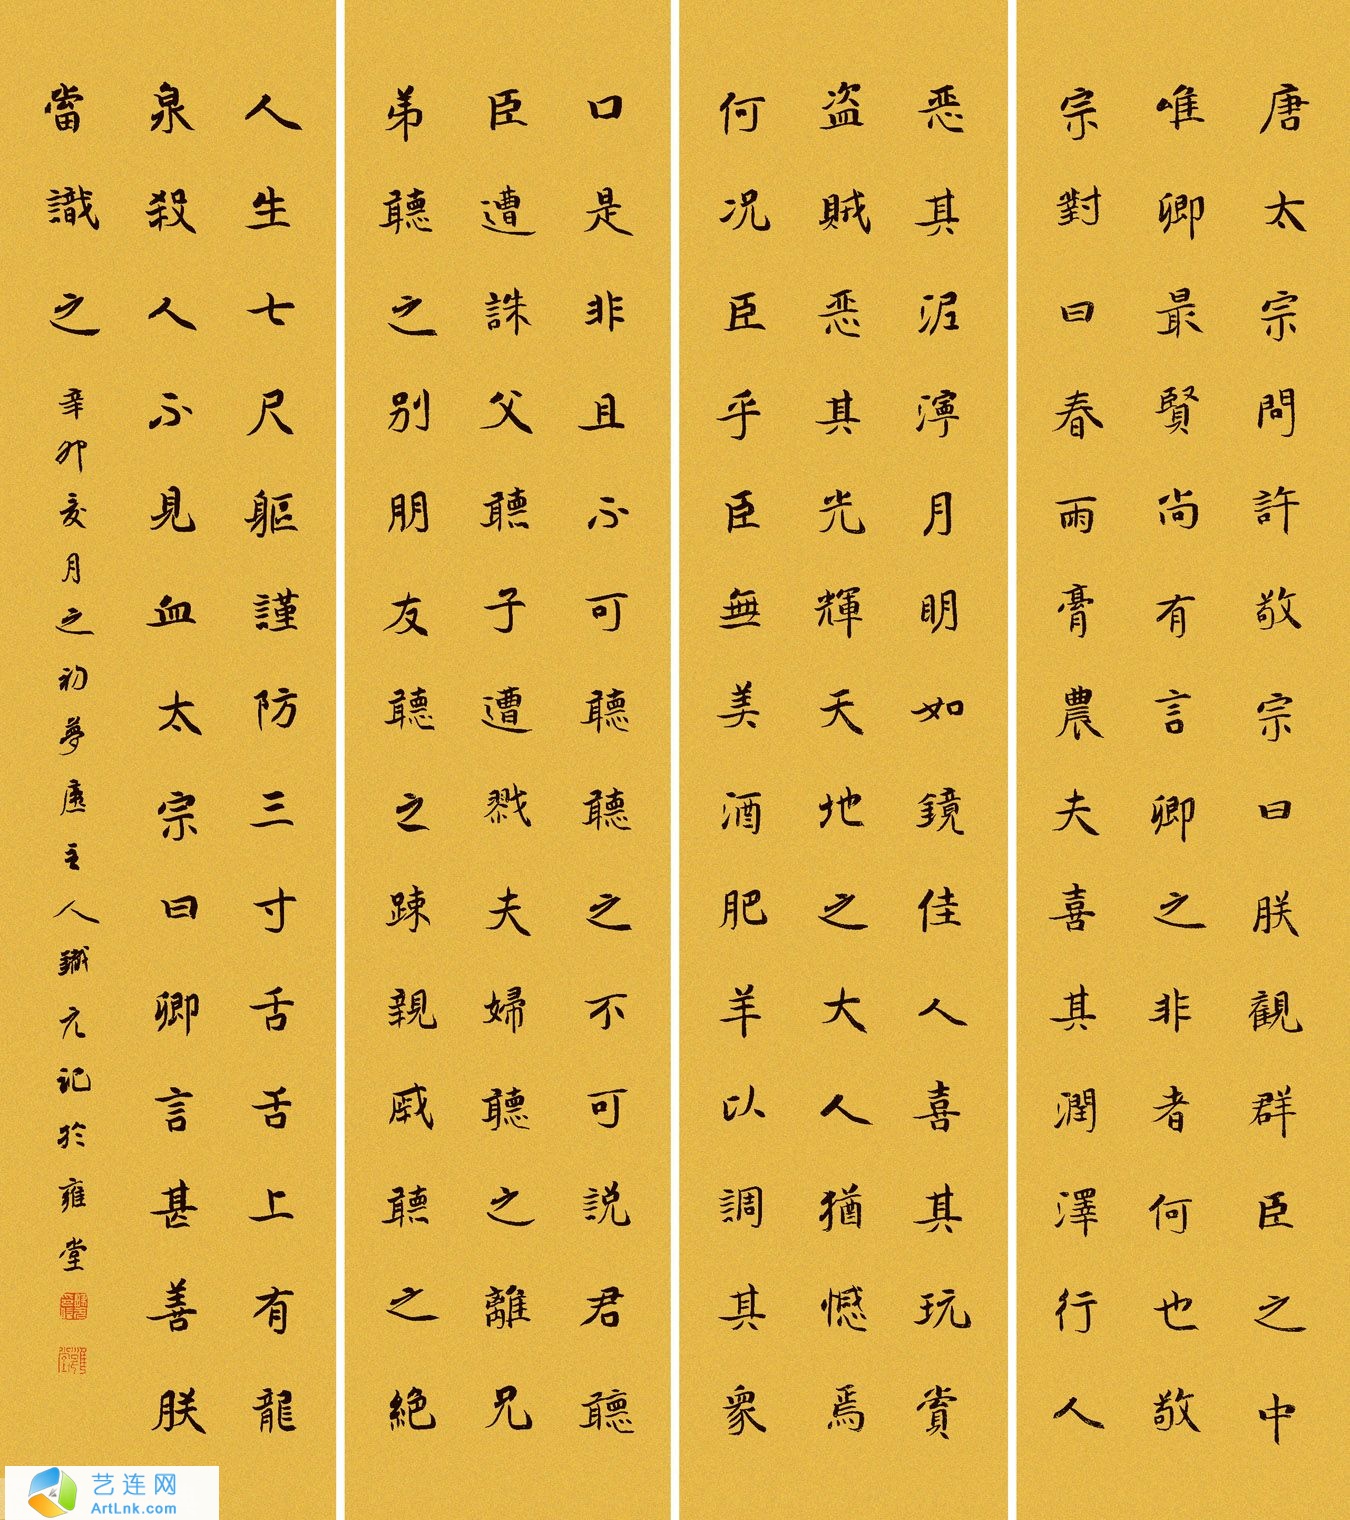 唐太宗問許敬宗曰朕觀群臣之中
唯卿最賢尚有言卿之非者何也敬
宗對曰春雨膏農夫喜其潤澤行人
恶其泥濘月明如鏡佳人喜其玩赏
盗賊恶其光輝天地之大人猶憾焉
何况臣乎臣無美酒肥羊以調其衆
口是非且不可聽聽之不可説君聽
臣遭誅父聽子遭戮夫婦聽之離兄
弟聽之别朋友聽之踈親戚聽之絶
人生七尺軀謹防三寸舌舌上有龍
泉殺人不見血太宗曰卿言甚善朕
當識之
辛卯亥月之初夢廬主人鐵元記於雍堂
艺连网
ArtLnk.com